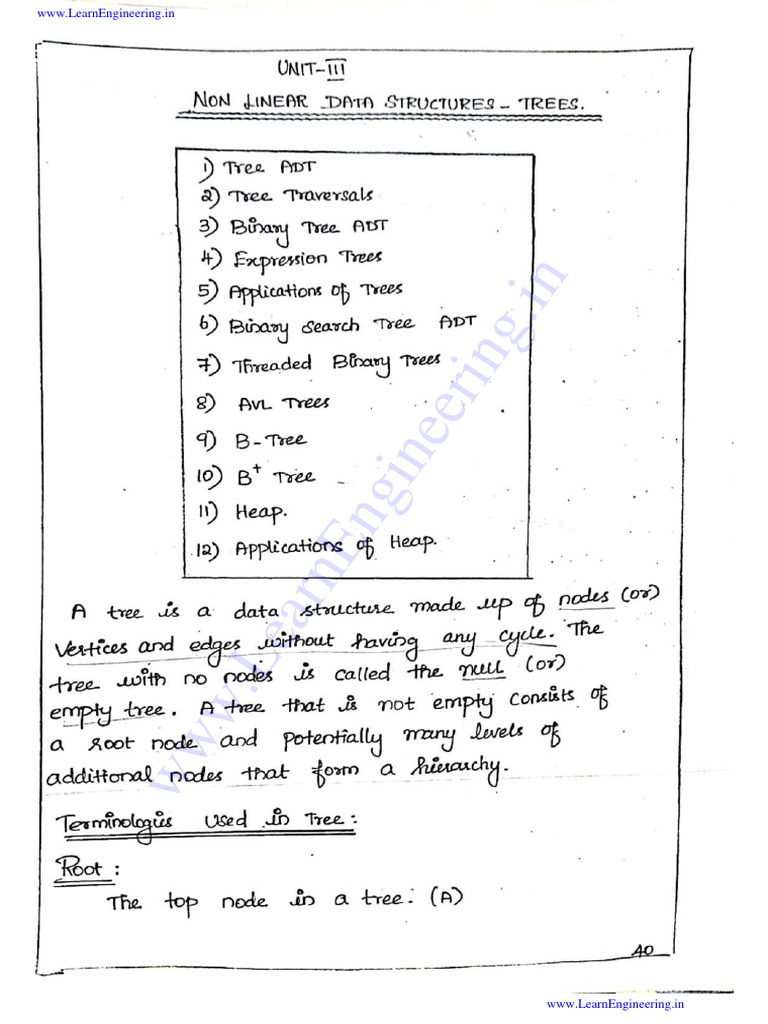 www.LearnEngineering.in
UNIT-III
NON LINEAR DATA STRUCTURES - TREES.
1) Tree ADT
2) Tree Traversals
3) Binary Tree ADT
4) Expression Trees
5) Applications Of Trees
6) Binary Search Tree ADT
7) Threaded Binary Trees
8) AVL Trees
9) B-Tree
10) B+ Tree
11) Heap.
12) Applications of Heap.
A tree is a data structure made up of nodes (or)
Vertices and edges without having any cycle. The
tree with no nodes is called the null (or)
empty tree. A tree that is not empty consists of
a root node and potentially many levels of
additional nodes that form a hierarchy.
Terminologies Used in Tree:
Root:
The top node in a tree. (A)
40
www.LearnEngineering.in
www.LearnEngineering.in